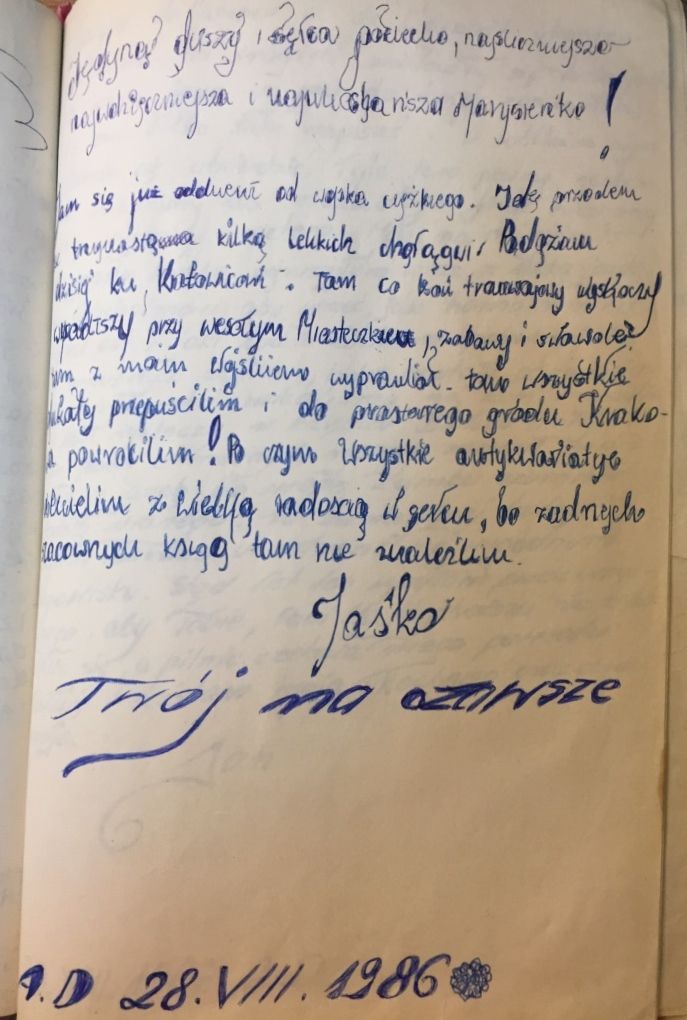 Jedyną duszy i sęrca pociecho, najśliczniejsza
najwdzięczniejsza i najukochańsza Marysieńko!
się już oddalił od wojska ciężkiego. Idę przodem
z trzynastoma kilką lekkich chorągwi. Podążam
dzisiaj ku Katowicom. Tam co koń tramwajowy wyskoczy
wypadłszy przy wesołym Miasteczku, zabawy i swawole
z moim wyprawiał. tam wszystkie
dukaty przepuścilim i do prastarego grodu Krako-
wa powrocilim! Po czym wszystkie antykwariaty
z wielką radoscią w sercu, bo zadnych
szacownych ksiąg tam nie znaleźlim.
Jaśko
Twój na zawsze
A.D 28.VIII.1986